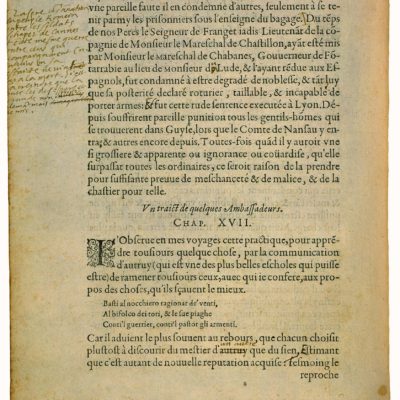 vne pareille faute il en condemne d'autres, seulement à se te-
nir parmy les prisonniers sous l'enseigne du bagage. Du tẽps
de nos Peres le Seigneur de Franget iadis Lieutenãt de la cõ-
pagnie de Monsieur le Mareschal de Chastillon, ayãt esté mis
par Monsieur le Mareschal de Chabanes, Gouuerneur de Fõ-
tarrabie au lieu de Monsieur du Lude, & l'ayant rédue aux Es-
pagnols, fut condamné à estre degradé de noblesse, & tãt luy
que sa posterité declaré roturier, taillable, & incapable de
porter armes: & fut cette rude sentence executée à Lyon. De-
puis souffrirent pareille punition tous les gentils-hommes qui
se trouuerent dans Guyse, lors que le Comte de Nansau y en-
tra; & autres encore depuis. Toutes-fois quãd il y auroit vne
si grossiere & apparente ou ignorance ou coüardise, qu'elle
surpassat toutes les ordinaires, ce seroit raison de la prendre
pour suffisante preuue de meschanceté & de malice, & de la
chastier pour telle.
Vn traict de quelques Ambassadeurs.
CHAP. XVII.
I'Obserue en mes voyages cette practique, pour appren-
dre tousiours quelque chose, par la communication
d'autruy (qui est vne des plus belles escholes qui puisse
estre) de ramener tousiours ceux, auec qui ie confere, aux pro-
pos des choses, qu'ils sçauent le mieux.
Basti al nocchiero ragionar de' venti,
Al bifolco dei tori, & le sue piaghe
Conti'l guerrier, conti'l pastor gli armenti.
Car il aduient le plus souuent au rebours, que chacun choisit
plustost à discourir du mestier d'autruy que du sien, Estimant
que c'est autant de nouuelle reputation acquise: Tesmoing le
reproche